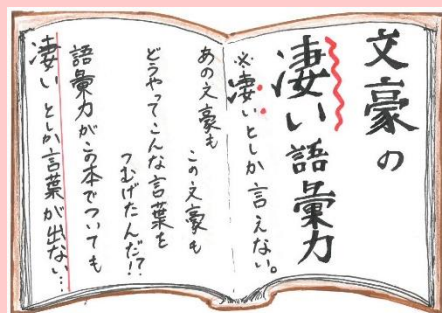 文豪の
凄い語彙力
※凄いとしか言えない。
あの文豪も この文豪も
どうやってこんな言葉を
つむげたんだ!?
語彙力がこの本でついても
凄いとしか言葉が出ない…